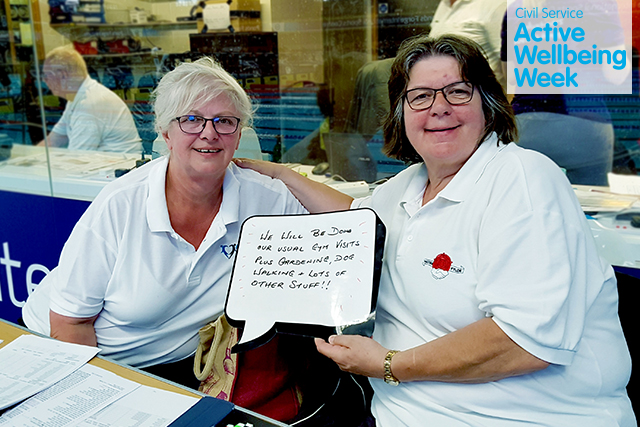 Civil Service
Active
Wellbeing
Week
WE WILL BE DOING
OUR USUAL GYM VISITS
PLUS GARDENING, DOG
WALKING + LOTS OF
OTHER STUFF!!